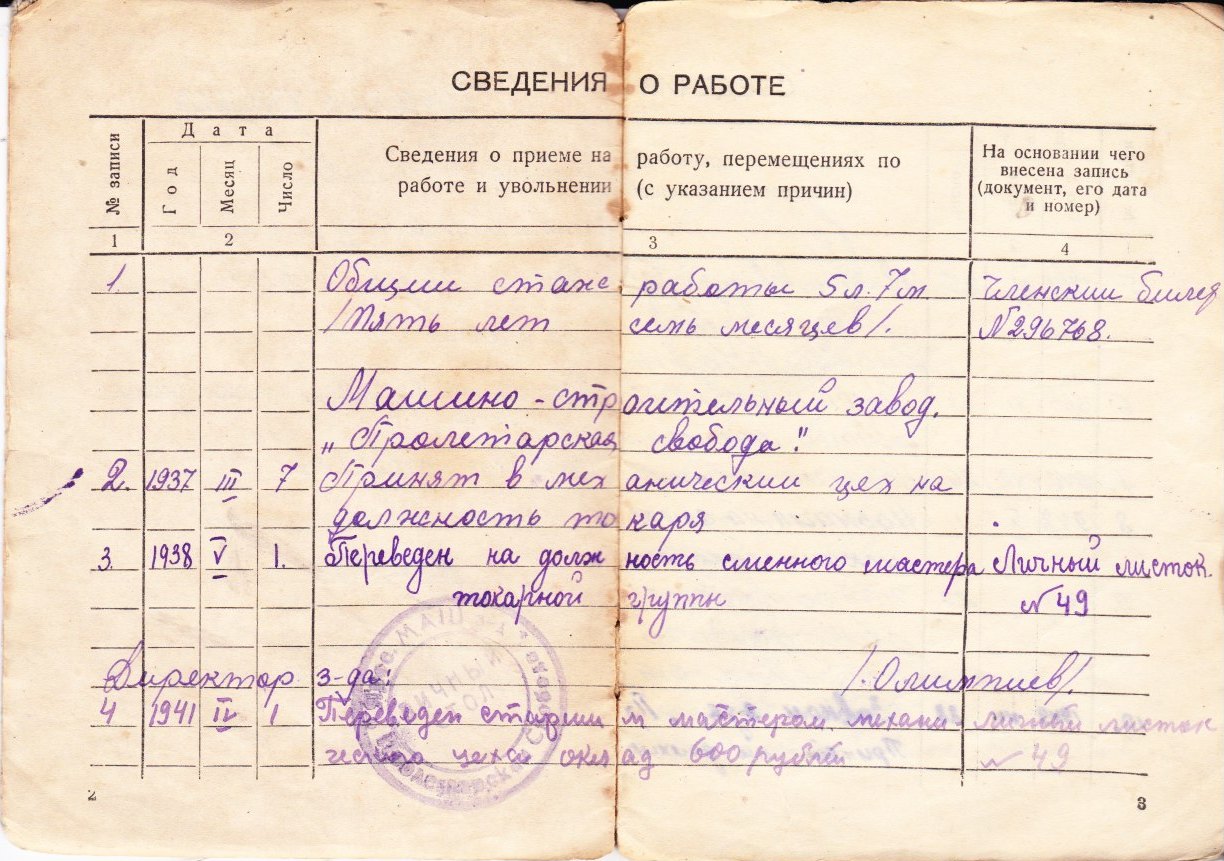 СВЕДЕНИЯ О РАБОТЕ
№ записи
Дата
Год
Месяц
Число
Сведения о приеме на работу, перемещениях по
работе и увольнении (с указанием причин)
На основании чего
внесена запись
(документ, его дата
и номер)
1 2 3 4
1 Общий стаж работы 5 л. 7 м Членский билет
/пять лет семь месяцев/. №296768.
Машино-строительный завод.
„Пролетарская свобода"
2. 1937 III 7 Принят в механический цех на
должность токаря
3. 1938 V 1. Переведен на должность сменного мастера Личный листок.
токарной группы № 49
Директор з-да: /.Олимпиев/
4 1941 IV 1 Переведен старшим мастером механи личный листок
ческого цеха оклад 600 рублей № 49
2 3